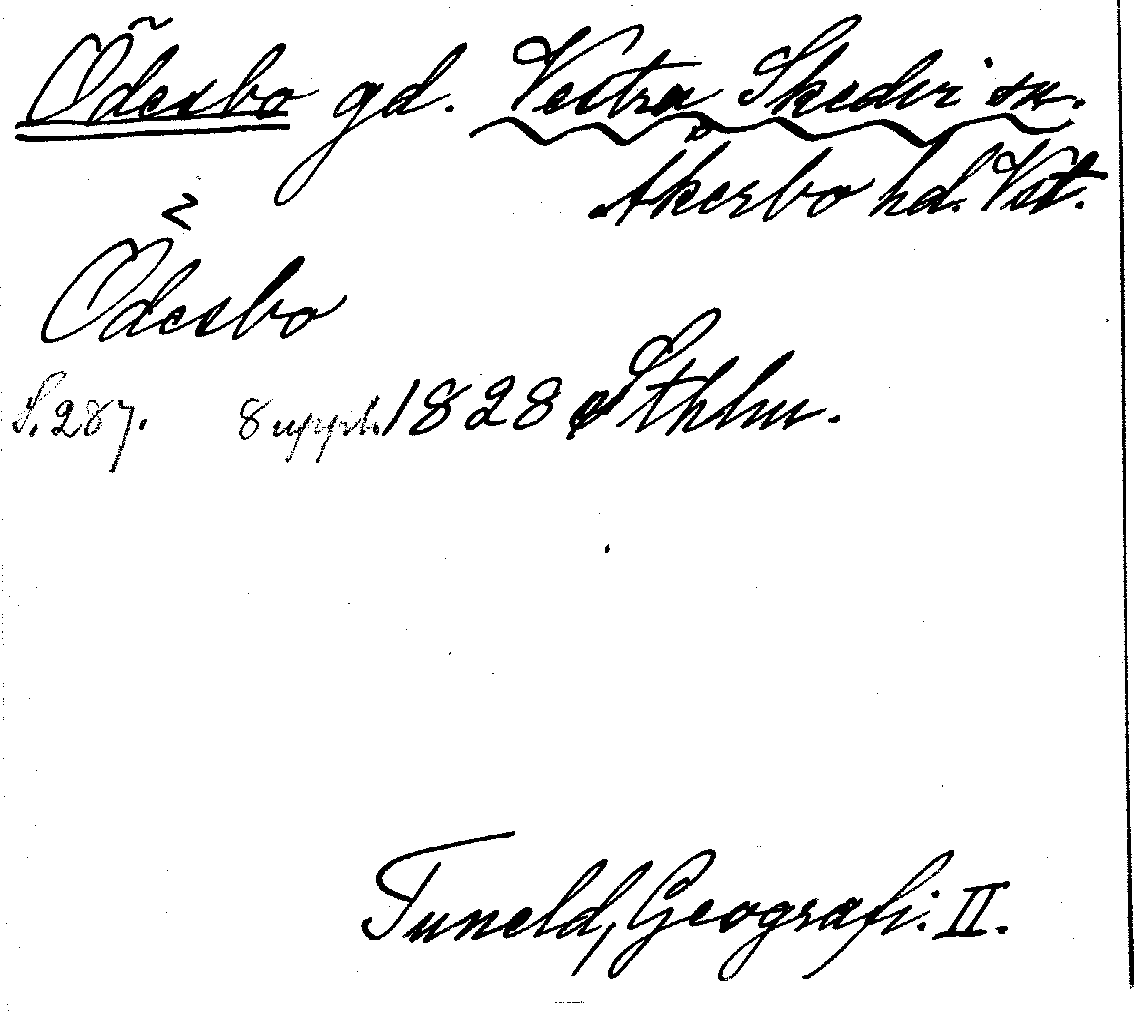 Ödesbo gd. Vestra Skedvi sn.
Åkerbo hd. Vstl.
Ödesbo
S. 287. 8 uppl. 1828 Sthlm.
Tuneld, Geografi. II.